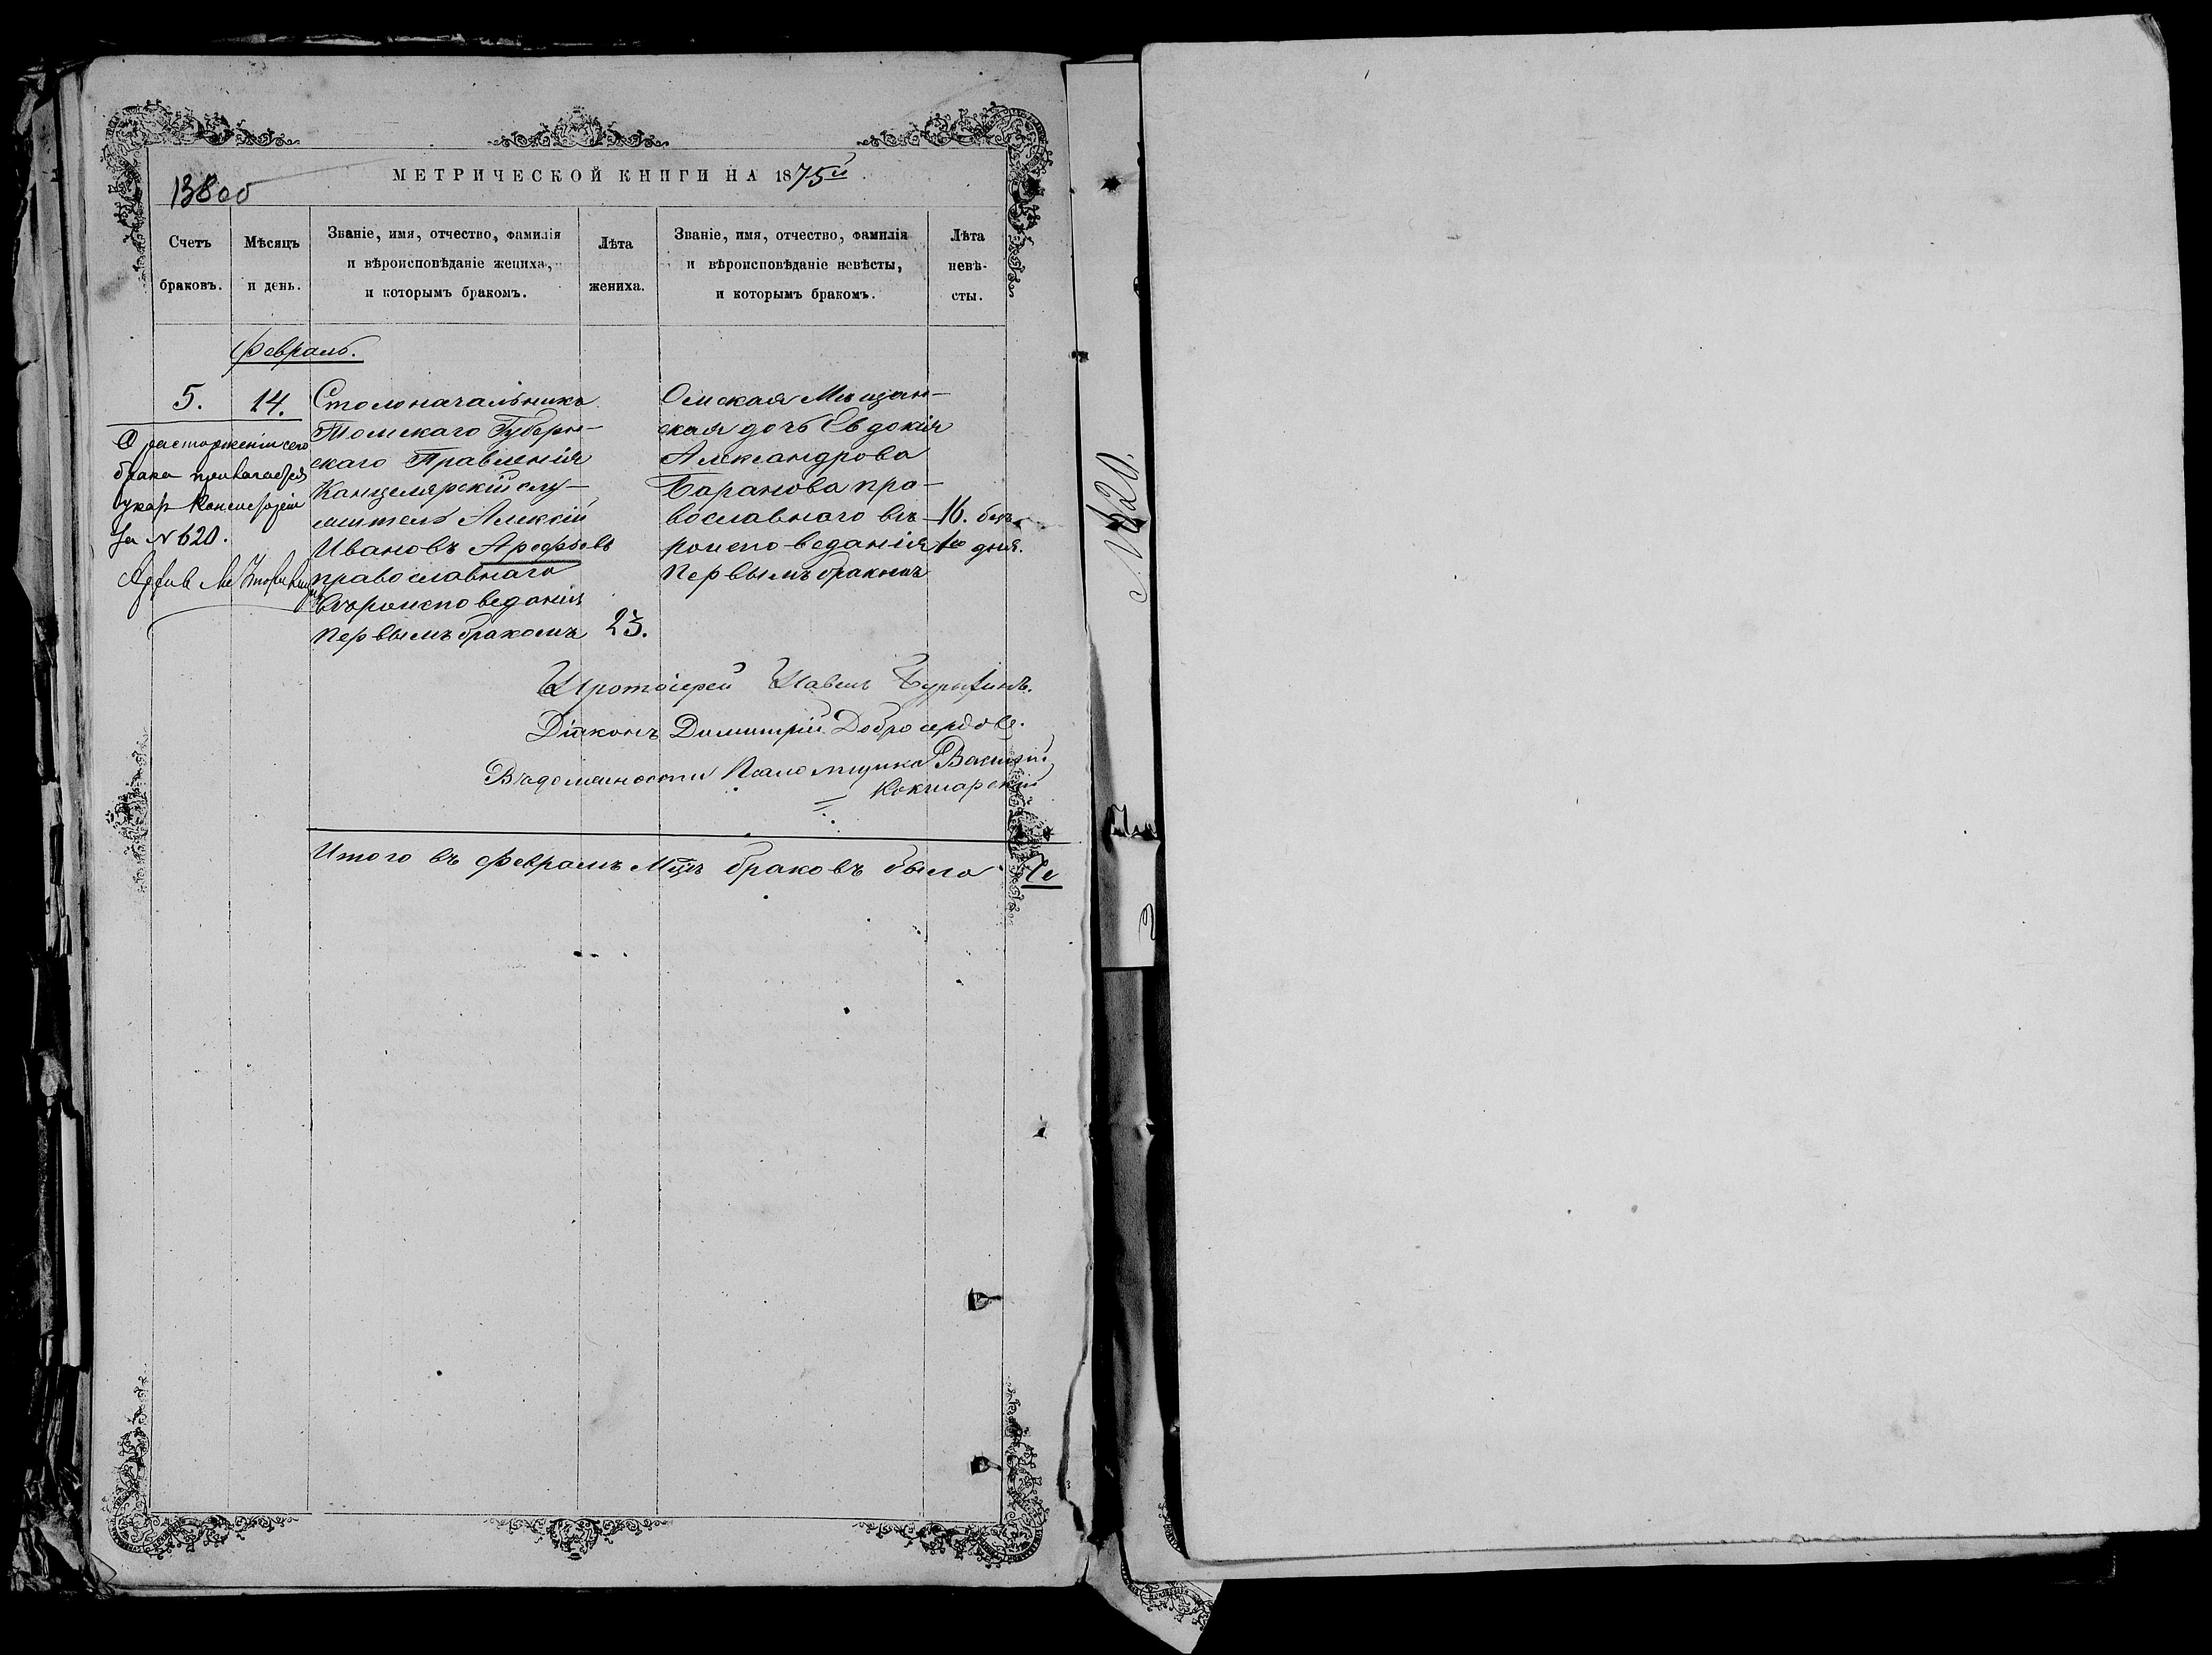 138 об
МЕТРИЧЕСКОЙ КНИГИ НА 1875й
Счетъ браковъ.
Мѣсяцъ и день.
Званіе, имя, отчество, фамилія
и вѣроисповѣданіе жениха,
и которымъ бракомъ.
Лѣта жениха.
Званіе, имя, отчество, фамилія
и вѣроисповѣданіе невѣсты,
и которымъ бракомъ.
Лѣта
невѣ-
сты.
Февраль.
5.
14.
О расторженіи сего
брака прилагается
указ Консисторіи
за № 620.
Столоначальникъ
Томскаго Губерн-
скаго Правленія
Канцелярскій слу-
житель Алексій
Ивановъ Арефьевъ
православнаго
вѣроисповеданія
первымъ бракомъ
23.
Омская Мѣщан-
ская дочь Евдокія
Александрова
Баранова пра-
вославнаго вѣ-
роисповеданія
первымъ бракомъ
16. безъ
дня.
Протоіерей Павелъ
Діаконъ Димитрій Добросердовъ.
Въ должности Псаломщика Василій
Кокшарскій
Итого въ Февралѣ М-цѣ браковъ было
№ 620.